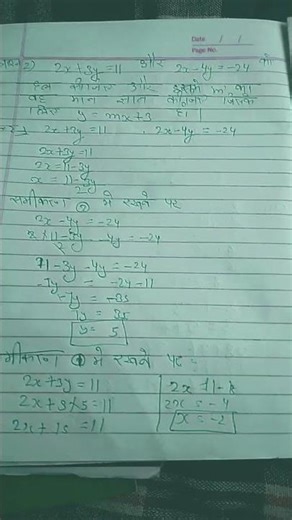 Date / /
Page No.
प्रश्न 2) 2x+3y=11 और 2x-4y=-24 को
हल कीजिए और इससे 'm' का
वह मान ज्ञात कीजिए जिसके
लिए y=mx+3 हो।
2x+3y=11 , 2x-4y=-24
2x+3y=11
2x=11-3y
x=11-3y/2
समीकरण ② में रखने पर
2x-4y=-24
2×11-3y/2-4y=-24
11-3y-4y=-24
-7y=-24-11
-7y=-35
y=5
समीकरण ① में रखने पर
2x+3y=11
2x+3×5=11
2x+15=11
2x=11-15
2x=-4
x=-2